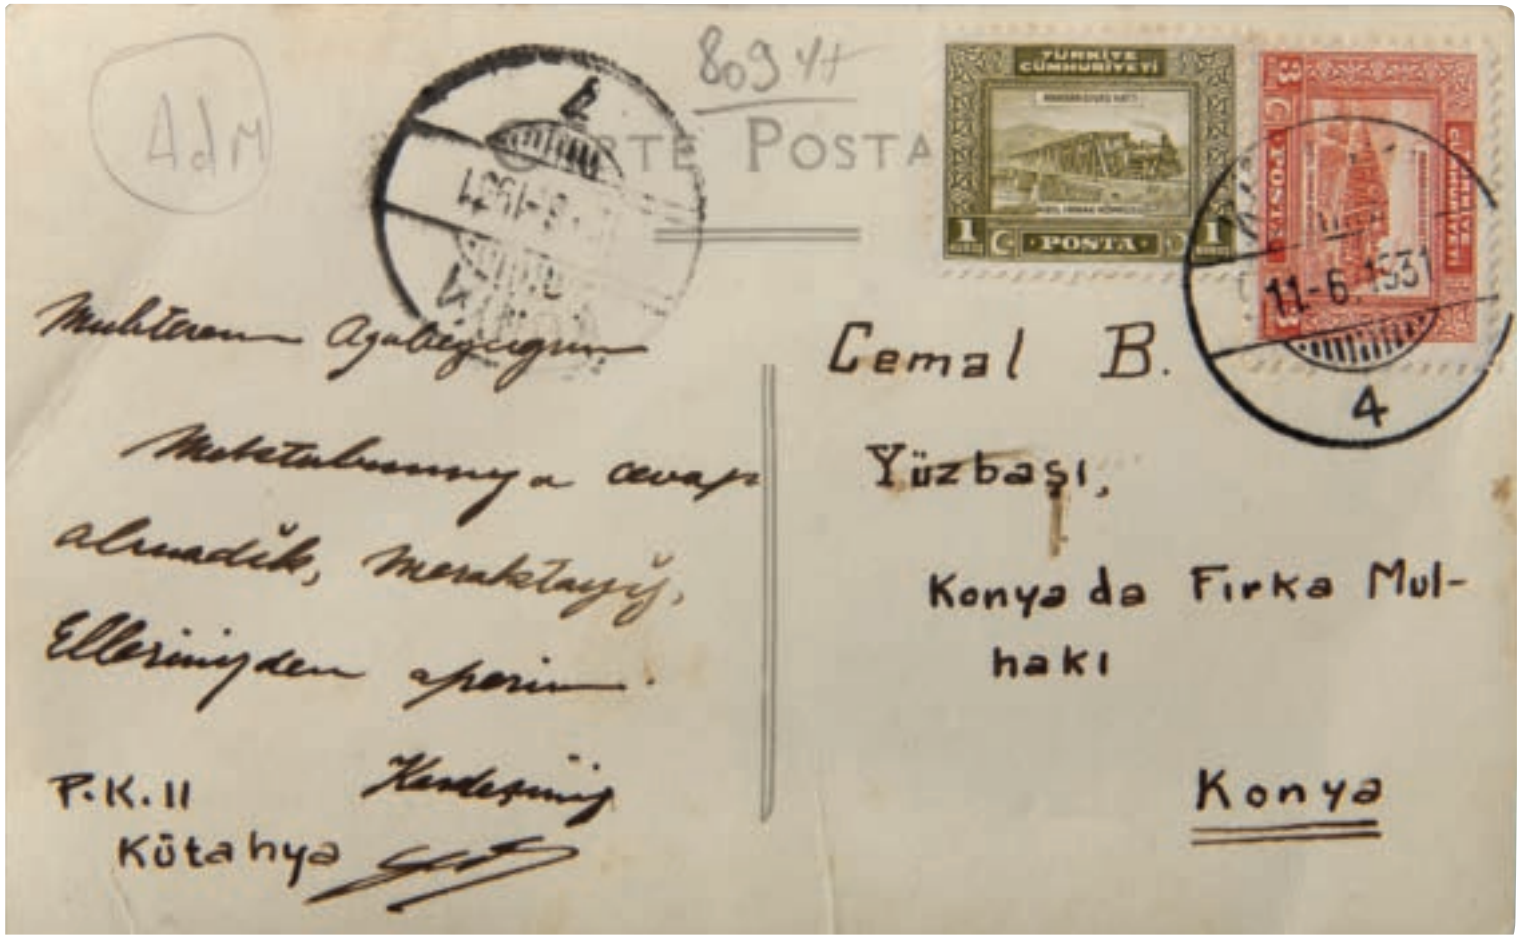 AdM
809
CARTE POSTA
TÜRKİYE
CÜMHURİYETİ
1 POSTA 1
3
POSTA
TÜRKİYE
CÜMHURİYETİ
11-6.1931
4
Muhterem Agabeyçigim
Mektubumuza cevap
almadik, meraktayiz,
Ellerinizden öperim.
Kardeşiniz
P.K.11
Kütahya
Cemal B.
Yüzbaşı,
Konyada Fırka Mul-
hakı
Konya